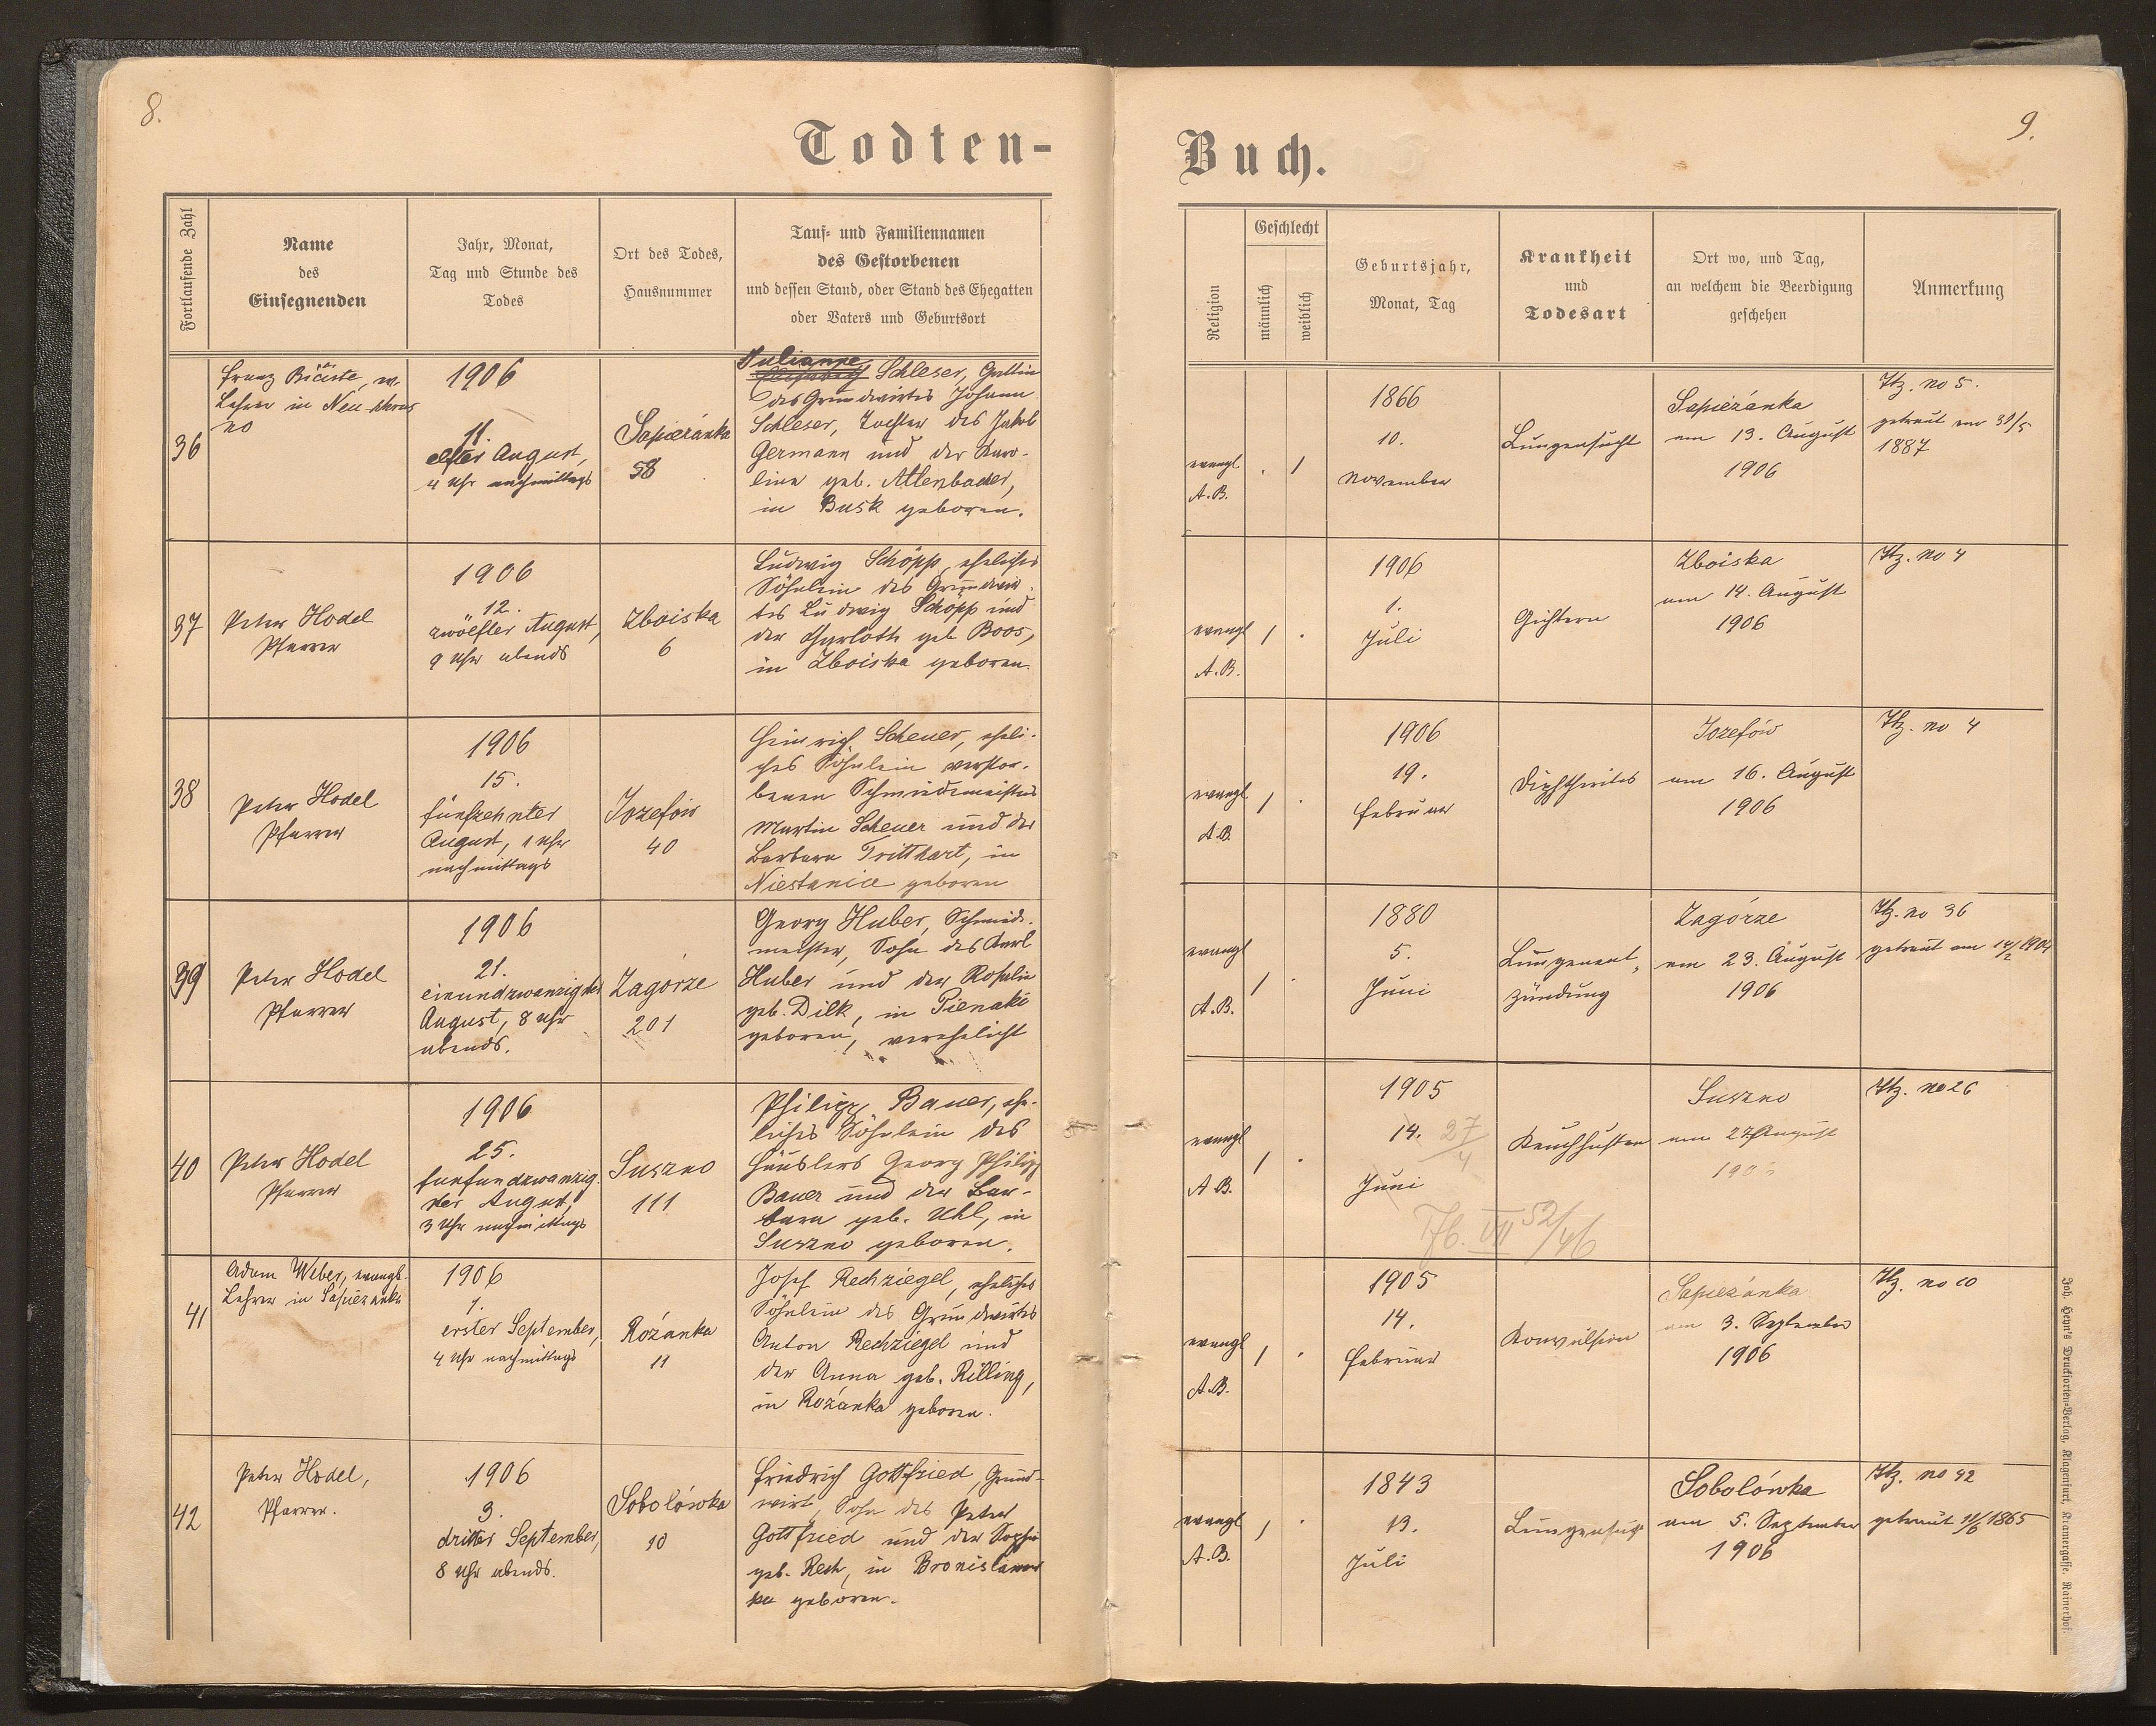 8.
Todten-
Fortlaufende Zahl
Name
des
Einsegnenden
Jahr, Monat,
Tag und Stunde des
Todes
Ort des Todes,
Hausnummer
Tauf= und Familiennamen
des Gestorbenen
und dessen Stand, oder Stand des Ehegatten
oder Vaters und Geburtsort
36
Franz
Lehrer in Neu-
no
1906
11.
elfter August,
4 Uhr nachmittags
Sapiezánka
58
Julianne
Schleser, Gattin
des Grundwirtes Johann
Schleser, Tochter des Jakob
Germann und der Karo-
line geb.
in Busk geboren.
37
Peter Hodel
Pfarrer
1906
12.
zwölfter August,
9 Uhr abends
Zboiska
6
Ludwig Schöpp, eheliches
Söhnlein des Grundwir-
tes Ludwig Schöpp und
der Charlotte geb Boos,
in Zboiska geboren.
38
Peter Hodel
Pfarrer
1906
15.
fünfzehnter
August, 1 Uhr
nachmittags
Jozefów
40
Heinrich Scheuer, eheli-
ches Söhnlein verstor-
benen Schmiedemeisters
Martin Scheuer und der
Barbara Tritthart, in
Niestanice geboren
39
Peter Hodel
Pfarrer
1906
21.
einundzwanzigster
August, 8 Uhr
abends.
Zagórze
201
Georg Huber, Schmiede-
meister, Sohn des Karl
Huber und der Rosalie
geb. Dilk, in Pienaki
geboren, verehelicht
40
Peter Hodel
Pfarrer
1906
25.
fünfundzwanzig-
ster August,
3 Uhr nachmittags
Suszno
111
Philipp Bauer, ehe-
liches Söhnlein des
Häuslers Georg Philipp
Bauer und der Bar-
bara geb. Uhl, in
Suszno geboren.
41
Adam Weber, evangl.
Lehrer in Sapiezanka
1906
1.
erster September,
4 Uhr nachmittags
Rozánka
11
Josef Rechziegel, eheliches
Söhnlein des Grundwirtes
Anton Rechziegel und
der Anna geb. Rilling,
in Rozánka geboren.
42
Peter Hodel,
Pfarrer.
1906
3.
dritter September,
8 Uhr abends.
Sobolówka
10
Friedrich Gottfried, Grund-
wirt, Sohn des Peter
Gottfried und der Sophie
geb. Rech, in Bronislaw
ka geboren.
9.
Buch.
Religion
Geschlecht
männlich
weiblich
Geburtsjahr,
Monat, Tag
Krankheit
und
Todesart
Ort wo, und Tag,
an welchem die Beerdigung
geschehen
Anmerkung
evangl
A.B.
. 1
1866
10.
November
Lungensucht
Sapiezánka
am 13. August
1906
Itz. no 5.
getraut am 30/5
1887
evangl
A.B.
1 .
1906
1.
Juli
Gichtern
Zboiska
am 14. August
1906
Itz. no 4
evangl
A.B.
1 .
1906
19.
Februar
Diphtheritis
Jozefów
am 16. August
1906
Itz. no 4
evangl
A.B.
1 .
1880
5.
Juni
Lungenent-
zündung
Zagórze
am 23. August
1906
Itz. no 36
getraut am 14/2 1904
evangl
A.B.
1 .
1905
14. 27/4
Juni
Tfb. VII 52/46
Keuchhusten
Suszno
am 27 August
1906
Itz. no 26
evangl
A.B.
1 .
1905
14.
Februar
Konvulsion
Sapiezánka
am 3. September
1906
Itz. no 10
evangl
A.B.
1 .
1843
13.
Juli
Lungensucht
Sobolówka
am 5. September
1906
Itz. no 42
getraut 11/6 1865
Joh. Heyn's Drucksorten=Verlag, Klagenfurt, Kramergasse, Rainerhof.